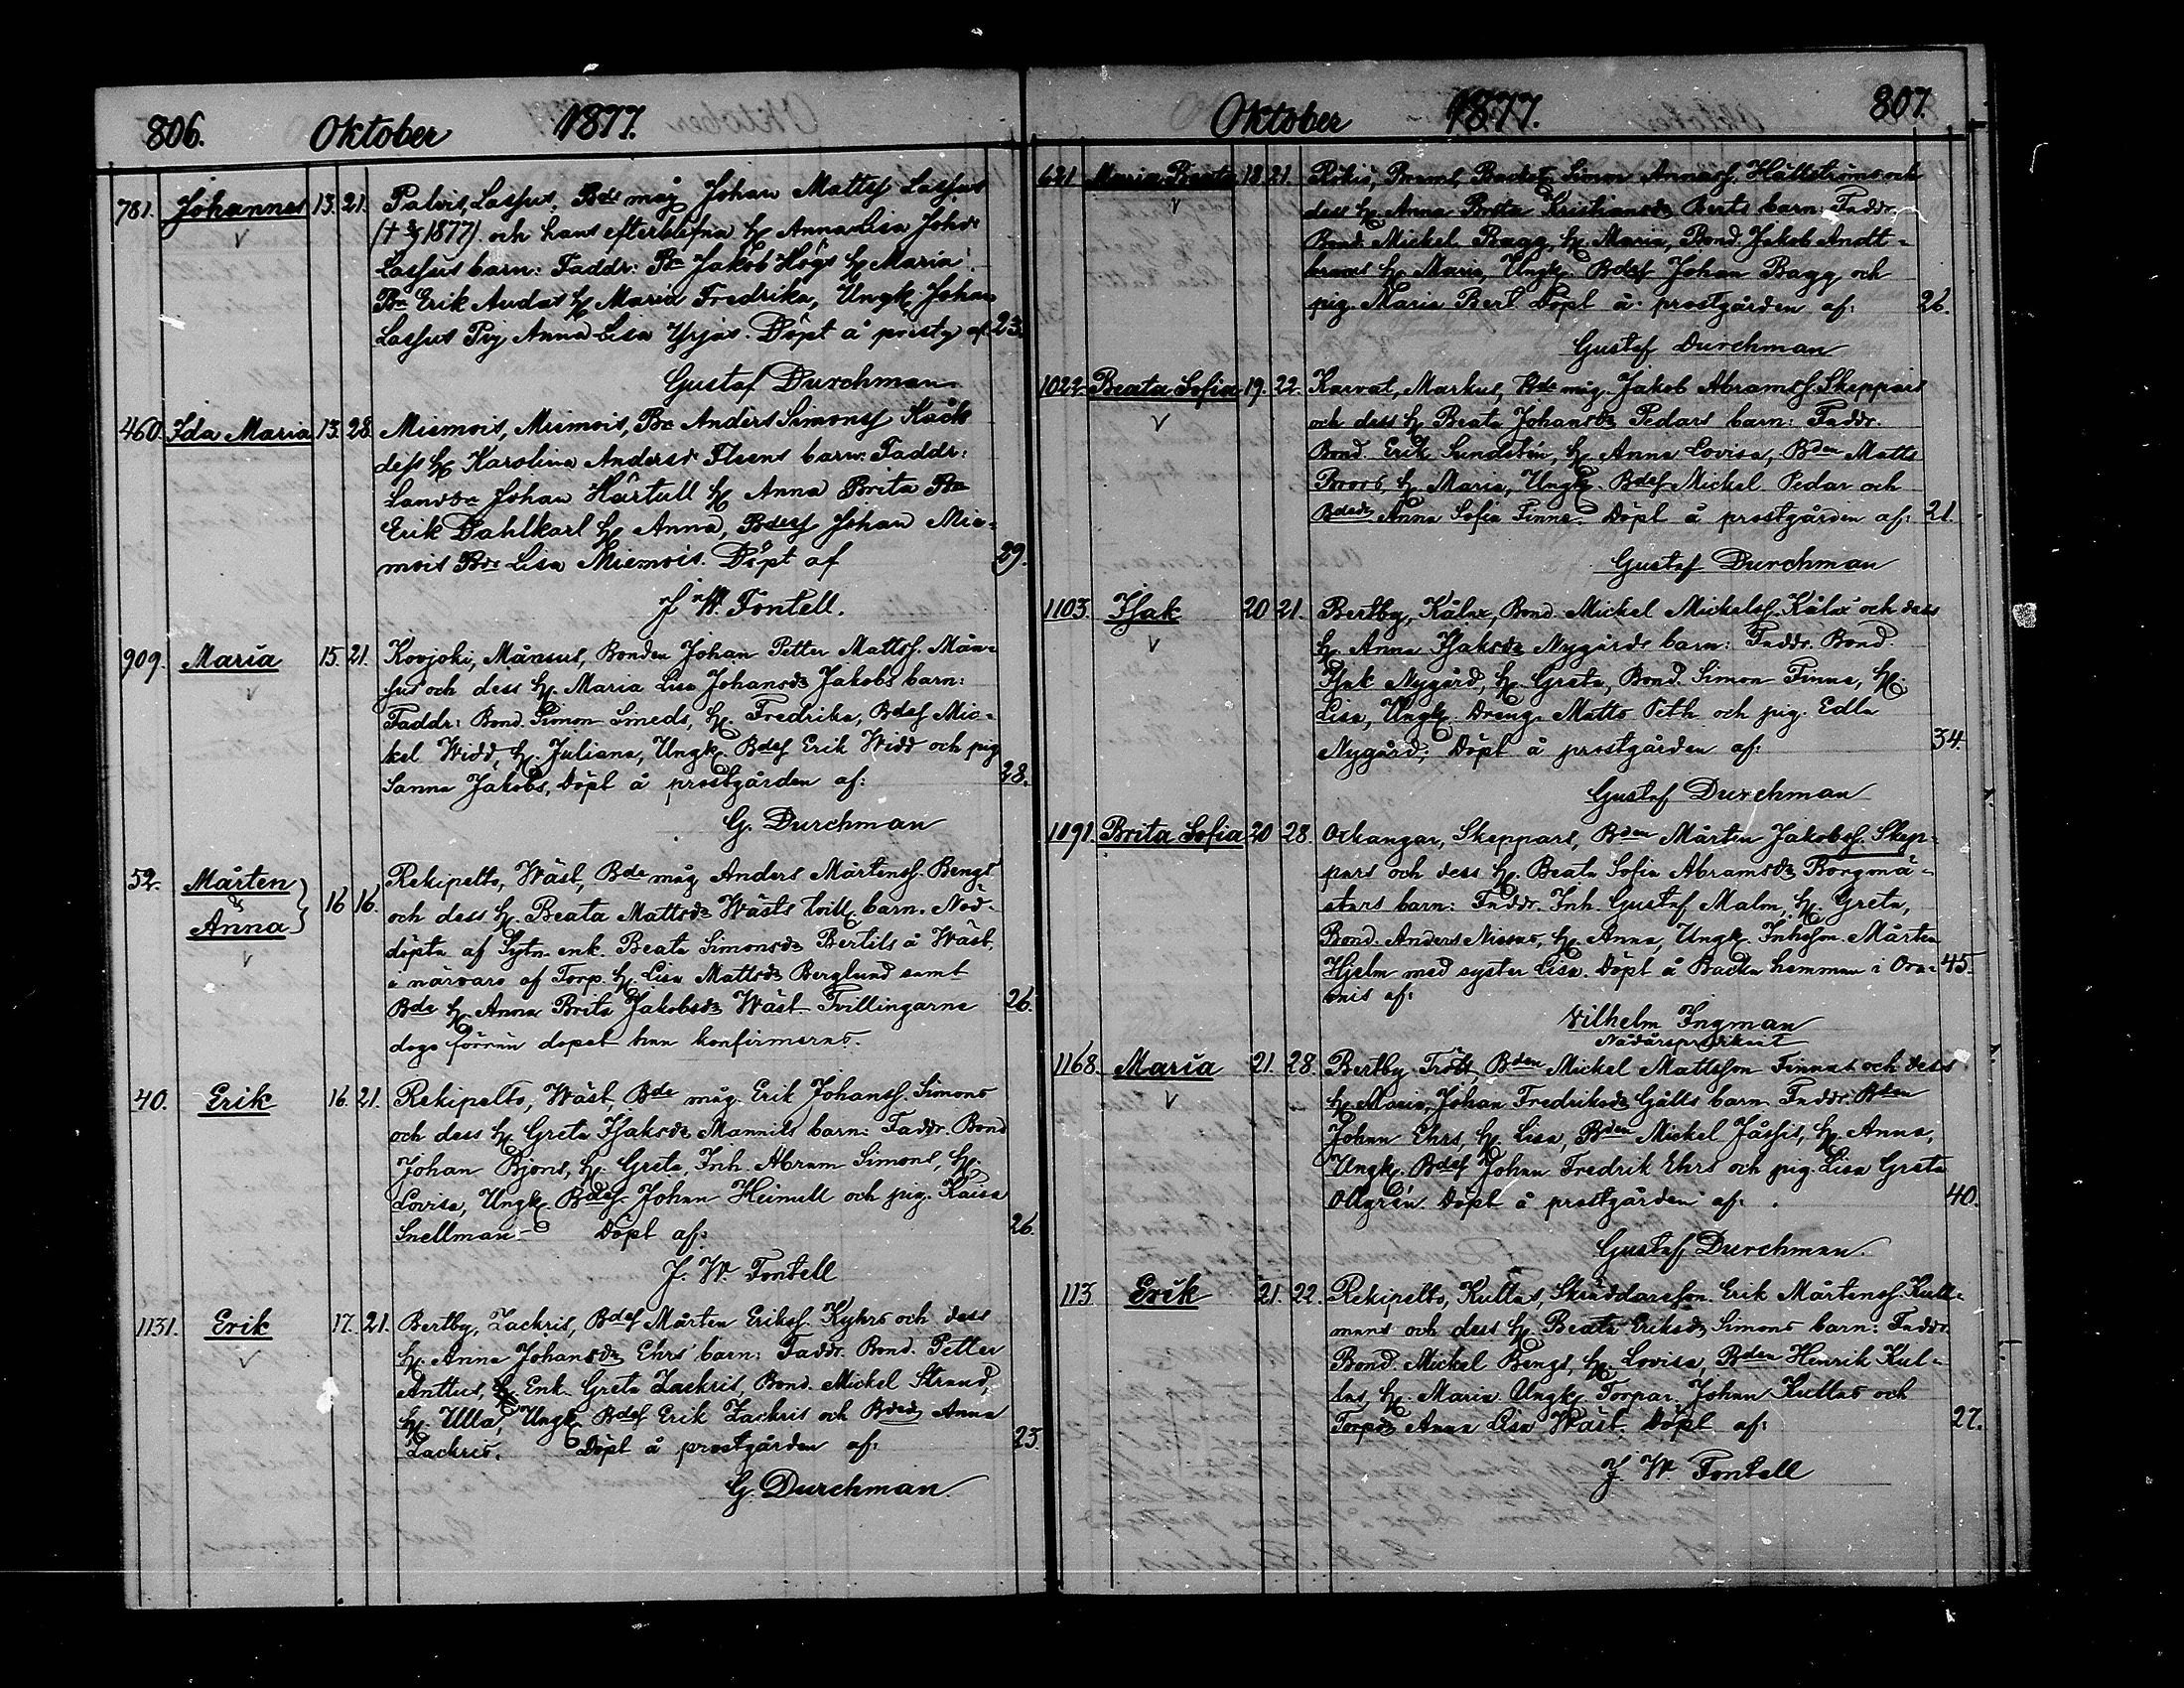 806. Oktober 1877.
781. Johannes 13. 21. Palvis, Lassus, Bde måg Johan Mattss Lassus
1877) och hans efterblefna H. Anna Lisa Johds
Lassus barn: Faddr: Bn Jakob Högs H. Maria
Bn Erik Audas H. Maria Fredrika, Ungk. Johan
Lassus Pig Anna Lisa Yrjas. Döpt å prestg af 23.
Gustaf Durchman
460. Ida Maria 13. 28. Miemois, Miemois, Bn Anders Simonss Kack
dess H. Karolina Andersd Fleens barn: Faddr:
Johan Härtull H. Anna Brita Bn
Erik Dahlkarl H. Anna, Bdess Johan Mie-
mois Lisa Miemois. Döpt af 29.
J W. Fontell.
909. Maria 15. 21. Kovjoki, Månsus, Bonden Johan Petter Mattss. Mån-
sus och dess H. Maria Lisa Johansdr Jakobs barn:
Faddr: Bond. Simon Smeds, H. Fredrika, Bdess Mic-
kel Widd, H. Juliana, Ungk. Bdess Erik Widd och pig
Sanna Jakobs, Döpt å prostgården af: 28.
G. Durchman
52. Mårten & Anna 16 16. Rekipelto, Wäst, Bde måg Anders Mårtenss. Bengs
och dess H. Beata Mattsdr Wästs tvill. barn. Nöd-
döpta af Sytn. enk. Beata Simonsdr Bertils å Wäst,
i närvaro af Torp. H. Lisa Mattsdr Berglund samt
Bde H. Anna Brita Jakobsdr Wäst Tvillingarne 26.
dogo förrän dopet han konfirmeras.
40. Erik 16. 21. Rekipelto, Wäst, Bde måg. Erik Johanss. Simons
och dess H. Greta Isaksdr Mannils barn: Faddr. Bond
Johan Bjons, H. Greta, Inh. Abram Simons, H.
Lovisa, Ungk. Bdess. Johan Heimull och pig. Kaisa
Snellman - Döpt af: 26.
J. W. Fontell
1131. Erik 17. 21. Bertby, Zackris, Bdess Mårten Erikss. Kyhrs och dess
H. Anna Johansdr Ehrs barn: Faddr. Bond. Petter
Anttus, Enk. Greta Zackris, Bond. Mickel Strand,
H. Ulla, Ungk. Bdess Erik Zackris och Bdedr Anna
Zackris. Döpt å prostgården af: 23.
G. Durchman
Oktober 1877. 807.
621 Maria Beata 18 21. Rökiö, Backst. Simon Annass. Hällströms och
dess H. Anna Brita Kristiansdr Berts barn: Faddr.
Bond. Mickel Bagg, H. Maria, Bond. Jakob Andt-
brams H. Maria, Ungk. Bdess Johan Bagg och
pig. Maria Bert Döpt å prostgården af: 26.
Gustaf Durchman
1022 Beata Sofia 19. 22. Karvat, Markus, Bde måg. Jakob Abramss. Skeppars
och dess H. Beata Johansdr Pedars barn: Faddr.
Bond. Erik Sundstén, H. Anna Lovisa, Bden Matts
Broos, H. Maria, Ungk. Bdess Mickel Pedar och
Bdedr Anna Sofia Finne. Döpt å prostgården af: 21.
Gustaf Durchman
1103. Isak 20 21. Bertby, Kålax, Bond. Mickel Mickelss. Kålax och dess
H. Anna Isaksdr Nygårds barn: Faddr. Bond.
Isak Nygård, H. Greta, Bond. Simon Finna, H.
Lisa, Ungk. Dreng. Matts Peth och pig. Edla
Nygård; Döpt å prostgården af: 34.
Gustaf Durchman
1091. Brita Sofia 20 28. Orkangar, Skeppars, Bden Mårten Jakobss. Skep-
pars och dess H. Beata Sofia Abramsdr Borgmä-
stars barn: Faddr. Inh. Gustaf Malm, H. Greta,
Bond. Anders Nissas, H. Anna, Ungk. Inhsson. Mårten
Hjelm med syster Lisa. Döpt å Backa hemman i Ora- 45.
vais af:
Vilhelm Ingman
Nådårspredikant
1168. Maria 21. 28. Bertby Trött, Bden Mickel Mattsson Finnas och dess
H. Maria Johan Fredriksdr Gålls barn. Faddr. Bden
Johan Ehrs, H. Lisa, Bden Mickel Jåssis, H. Anna,
Ungk. Bdess Johan Fredrik Ehrs och pig. Lisa Greta
Ollgrén. Döpt å prostgården af: 40.
Gustaf Durchman.
113. Erik 21. 22. Rekipelto, Kullas, Skräddaresson. Erik Mårtenss. Kull-
mans och dess H. Beata Eriksdr Simons barn: Faddr.
Bond. Mickel Bengs, H. Lovisa, Bden Henrik Kul-
las, H. Maria. Ungk. Torpar. Johan Kullas och
Torpdr Anna Lisa Wäst. Döpt af: 27.
J. W. Fontell